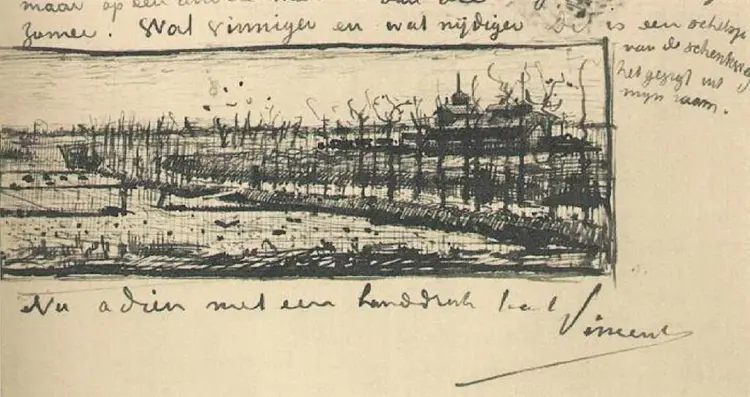 maar op een
zomer. Wat vinniger en wat nijdiger Dit is een schetsje
van de Schenkweg
het gezigt uit
mijn raam.
Nu adieu met een handdruk
Vincent